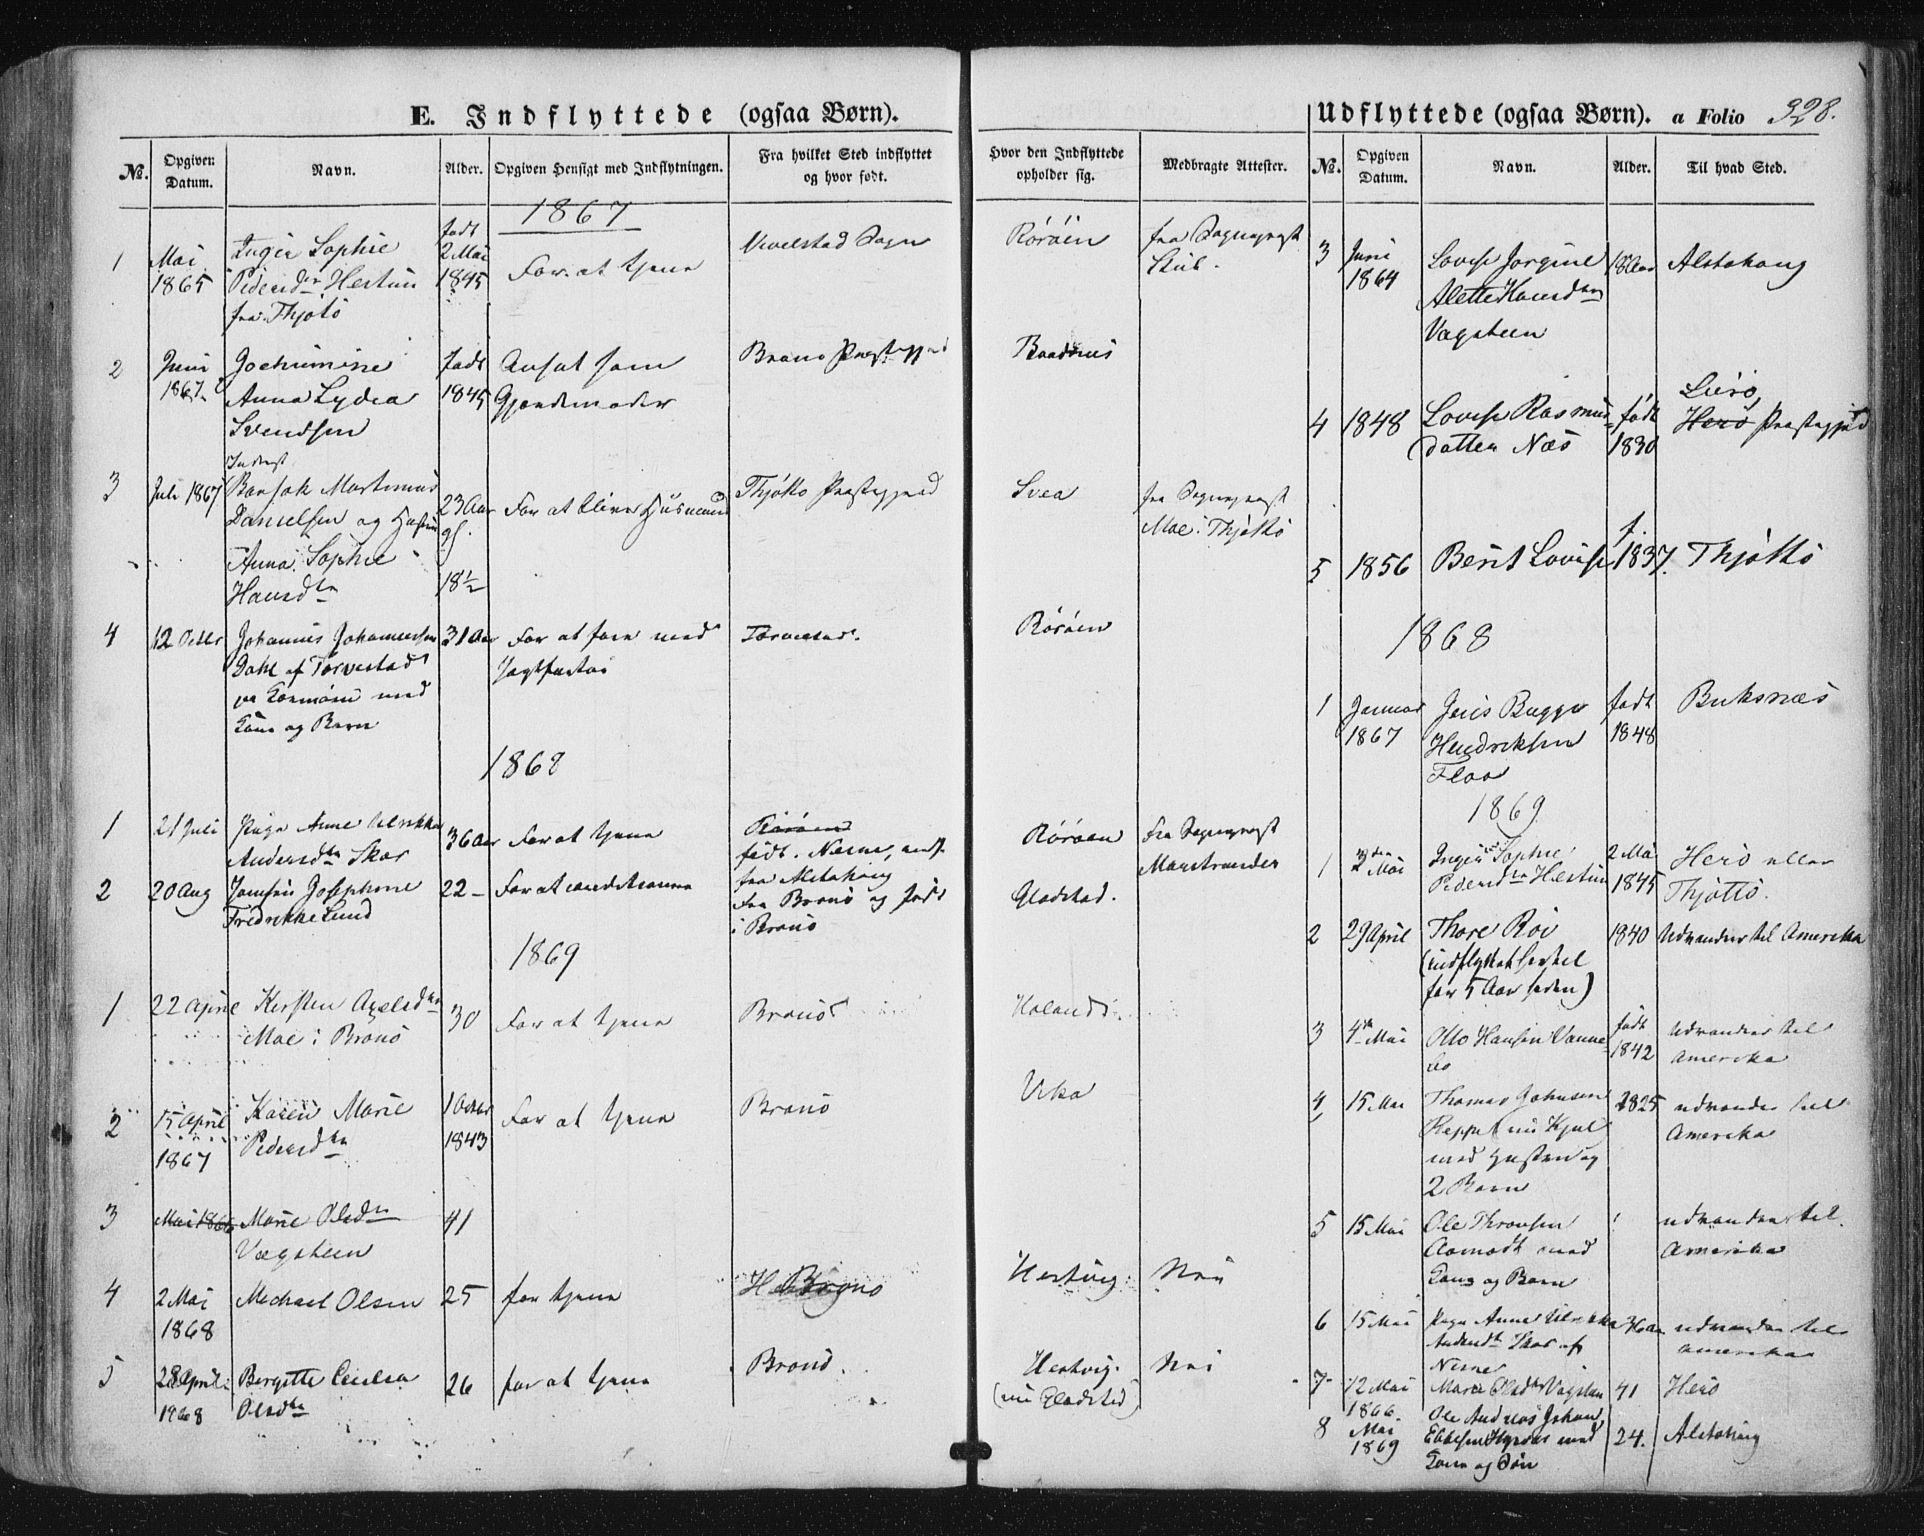 E. Indflyttede (ogsaa Børn).
No. Opgiven Datum. Navn. Alder. Opgiven Hensigt med Indflytningen. Fra hvilket Sted indflyttet og hvor født. Hvor den Indflyttede opholder sig. Medbragte Attester.
1867
1 Mai 1865 Inger Sophie
Pedersdtr Hestun
fra Thjøtø
født 2 Mai 1845
For at tjene
Vevelstad Sogn
Rørøen
fra Sognepræst
2 Juni 1867 Jochumine
Anna Lydea
Svendsen
født 1845
Ansat som
Gjordemoder
Brønø Præstegjeld
3 Juli 1867 Inderst
Martinus
Danielsen og Hustru
Anna Sophie
Hansdtr
23 Aar
18½
For at blive Husmand
Thjøttø Præstegjeld
Svea
fra Sognepræst
Moe i Thjøttø
4 12 Octbr Johannes Johannessen
Dahl af Torvestad
paa Karmøen med
Kone og Børn
31 Aar
For at fare med
Torvestad
Rørøen
1868
1 21 Juli Pige Anne Ulrikke
Andersdtr Skar
36 Aar
For at tjene
Rørøen
født i Nesne, indf.
fra Alstahoug
Rørøen
Fra Sognepræst
Marstrander
2 20 Aug Josephine
Fredrikke Lund
22 –
Fra Brønø og født
i Brønø
Gladstad.
1869
1 22 April Kirsten Axelsdtr
Moe i Brønø
30
For at tjene
Brønø
Holand
2 15 April 1867 Karen Marie
Pedersdtr
1 Octbr 1843
For at tjene
Brønø
Vika
3 Mai 1866 Marie Olsdtr
Vægsteen
41
4 2 Mai 1868 Michael Olsen
25
for tjene
Brønø
Hestvig
Nei
5 28 April 1868 Bergitte Cecilia
Olsdtr
26
for at tjene
Brønø.
Hestvig.
(nu Gladstad)
Nei
Udflyttede (ogsaa Børn). a Folio 328.
No. Opgiven Datum. Navn. Alder. Til hvad Sted.
3 Juni 1864 Lovise Jørgine
Alette Hansdtr
Vægsteen
18 Aar
Alstahoug
4 1848 Lovise Rasmus-
datter Næs
født 1830
Lurø,
Herø Præstegjeld
5 1856 Berit Lovise
f. 1837.
Thjøttø
1868
1 Januar 1867 Jens Bugge
Hendriksen
Floa
født 1848
Buksnæs
1869
1 2den Mai Inger Sophie
Pedersdtr Hestun
2 Mai 1845
Herø eller
Thjøttø.
2 29 April Thore Roi
(indflyttet hertil
for 5 Aar siden)
1840
Udvandrer til Amerika
3 4de Mai Otto Hansen
født 1842
Udvandrer til
Amerika
4 15 Mai Thomas Johnsen
med Hustru og
2 Børn
1825
udvandrer til
Amerika
5 15 Mai Ole
Aamodt med
Kone og Børn
udvandrer til
Amerika
6 15 Mai Pige Anne Ulrikke
Andersdtr Skar af
Nesne
36 Aar
udvandrer til
Amerika
7 12 Mai 1866. Marie Olsdtr Vægsteen
41
Herø
8 Mai 1869 Ole Andreas Johan
Ebbesen med
Kone og Søn
24.
Alstahoug